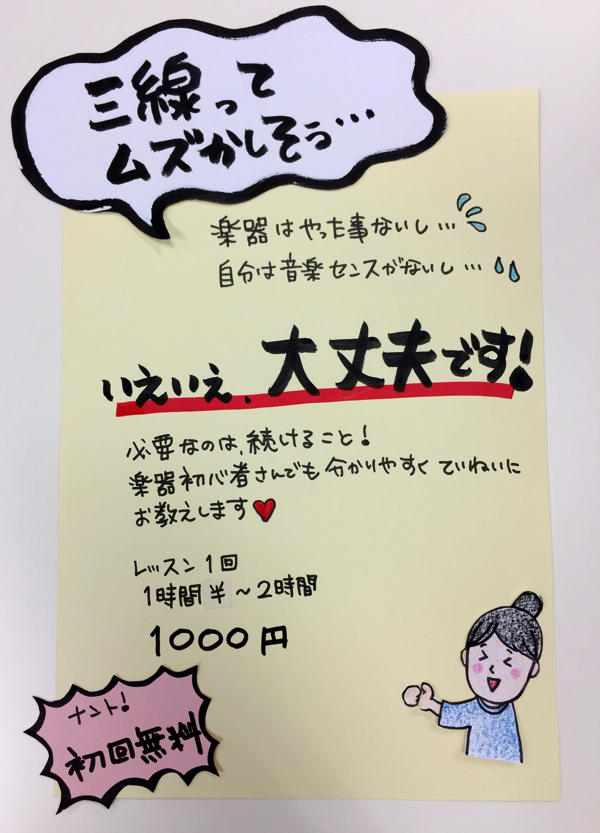 三線って
ムズかしそう…
楽器はやった事ないし…
自分は音楽センスがないし…
いえいえ、大丈夫です!
必要なのは、続けること!
楽器初心者さんでも分かりやすくていねいに
お教えします♥
レッスン1回
1時間半~2時間
1000円
ナント!
初回無料